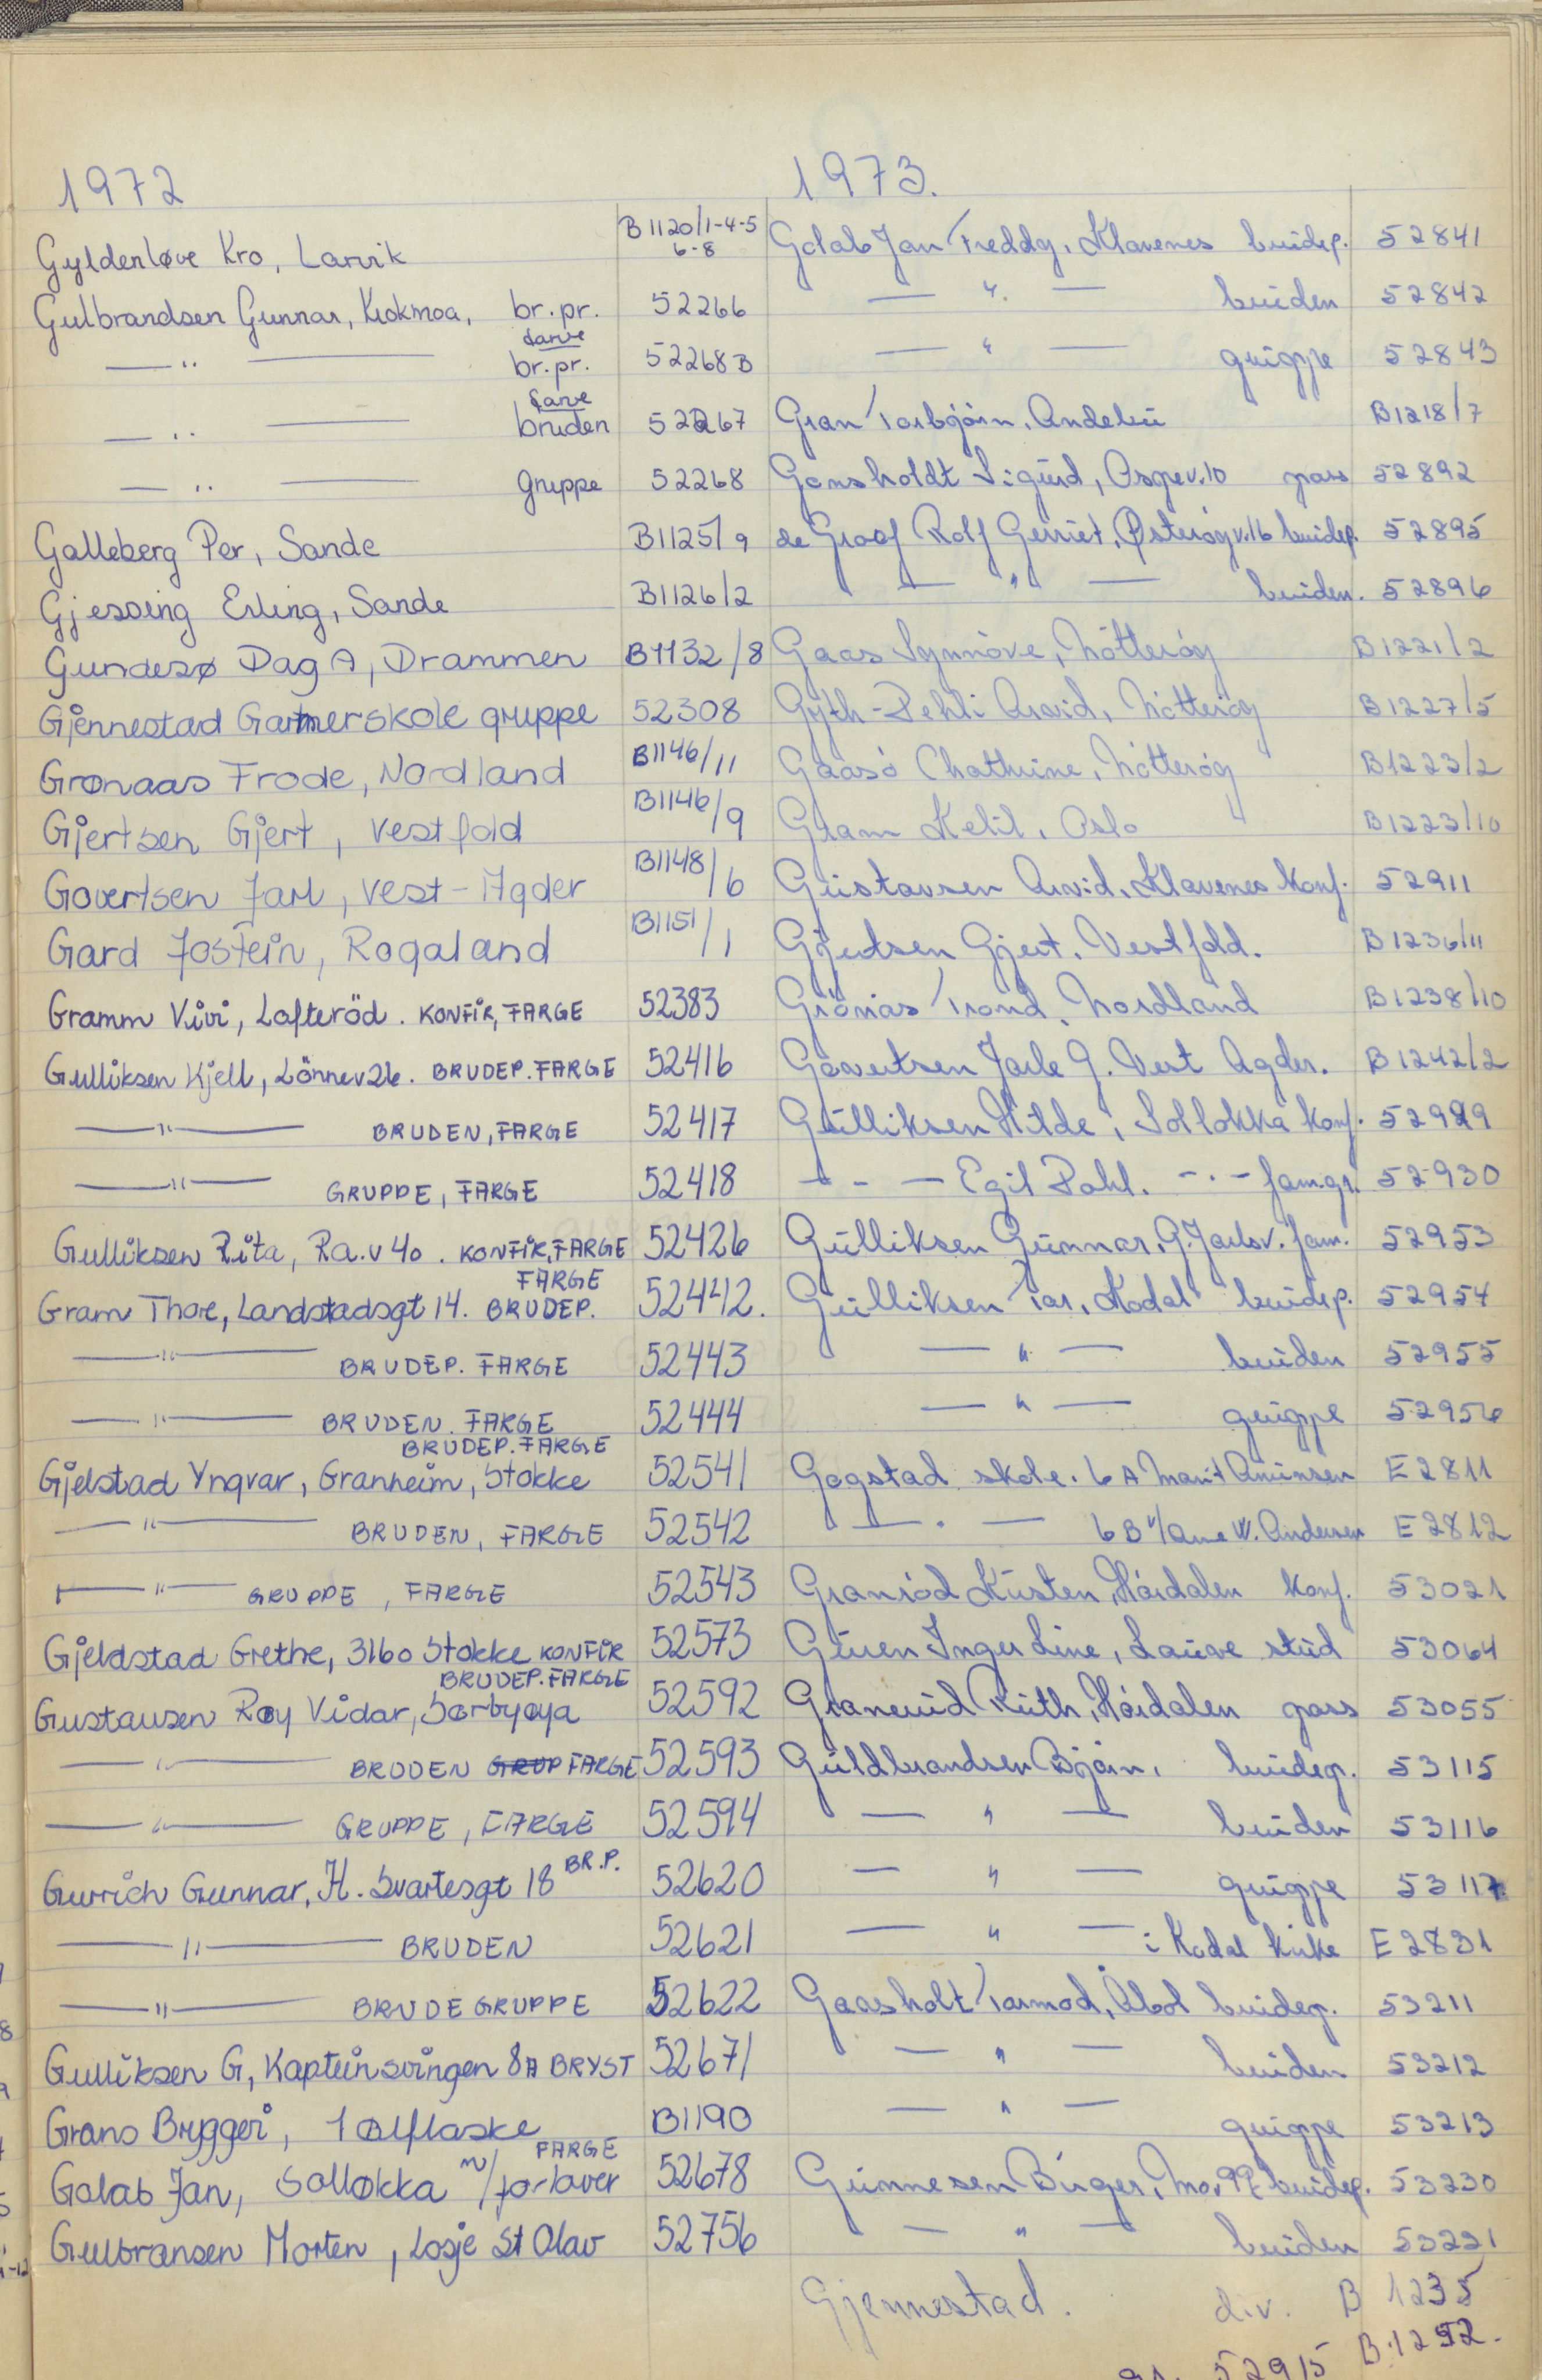 1972
Gyldenløve Kro, Larvik B1120/1-4-5 6-8
Gulbrandsen Gunnar, Krokmoa, br.pr. 52266
— " — farve br.pr. 52268B
— " — farve bruden 52267
— " — gruppe 52268
Galleberg Per, Sande B1125/9
Gjessing Erling, Sande B1126/2
Gundesø Dag A, Drammen B1132/8
Gjennestad Gartnerskole gruppe 52308
Grønaas Frode, Nordland B1146/11
Gjertsen Gjert, Vestfold B1146/9
Govertsen Jarl, Vest-Agder B1148/6
Gard Jostein, Rogaland B1151/1
Gramm Vivi, Lofteröd. KONFIR, FARGE 52383
Gulliksen Kjell, Lönnev26. BRUDEP. FARGE 52416
— " — BRUDEN, FARGE 52417
— " — GRUPPE, FARGE 52418
Gulliksen Rita, Ra.v 40. KONFIR, FARGE 52426
Gram Thore, Landstadsgt 14. FARGE BRUDEP. 52442.
— " — BRUDEP. FARGE 52443
— " — BRUDEN. FARGE 52444
Gjelstad Yngvar, Granheim, Stokke BRUDEP. FARGE 52541
— " — BRUDEN, FARGE 52542
— " — GRUPPE, FARGE 52543
Gjeldstad Grethe, 3160 Stokke KONFIR 52573
Gustavsen Roy Vidar, Sørbyøya BRUDEP. FARGE 52592
— " — BRUDEN GRUP FARGE 52593
— " — GRUPPE, FARGE 52594
Gurrich Gunnar, H. Svartesgt 18 BR.P. 52620
— " — BRUDEN 52621
— " — BRUDEGRUPPE 52622
Gulliksen G, Kapteinsvingen 8A BRYST 52671
Grans Bryggeri, 1 ølflaske B1190
Golab Jan, Solløkka m/forlover FARGE 52678
Gulbransen Morten, Losje St Olav 52756
1973.
Golab Jan Freddy, Klavenes brudep. 52841
— " — bruden 52842
— " — gruppe 52843
Gran Torbjörn, Andebu B1218/7
Gonsholdt Sigurd, Ospev.10 pass 52892
de Graaf Rolf Gerriet, Østerøyv.16 brudep. 52895
— " — bruden. 52896
Gaas Synnöve, Nötteröy B1221/2
Gyth-Dehli Arvid, Nötteröy B1227/5
Gaasö Chathrine, Nötteröy B1223/2
Gram Ketil, Oslo B1223/10
Gustavsen Arvid, Klavenes konf. 52911
Gjertsen Gjert, Vestfold. B1236/11
Grönås Trond, Nordland B1238/10
Govertsen Jarle G. Vest Agder. B1242/2
Gulliksen Hilde, Solløkka konf. 52929
— " — Egil Dahl. — " — fam.gr. 52930
Gulliksen Gunnar, G. Jarlsv. fam. 52953
Gulliksen Tor, Kodal brudep. 52954
— " — bruden 52955
— " — gruppe 52956
Gogstad skole. 6A Marit Amunsen E2811
— " — 6B v/Anne W. Andersen E2812
Granröd Kirsten, Höidalen konf. 53021
Guren Inger Line, Lauve stud 53064
Granerud Ruth, Höidalen pass 53055
Guldbrandsen Björn, brudep. 53115
— " — bruden 53116
— " — gruppe 53117
— " — i Kodal kirke E2831
Gaasholt Tormod, Åbol brudep. 53211
— " — bruden 53212
— " — gruppe 53213
Gunnesen Birger, Mov 99 brudep. 53230
— " — bruden 53231
Gjennestad. div. B 1235
gr. 52915 B.1252.